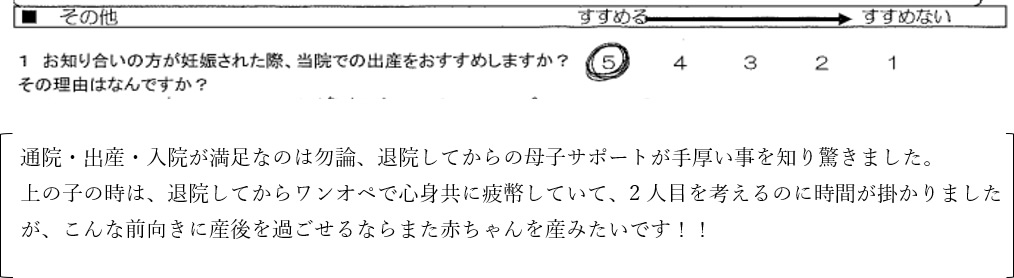 ■ その他 すすめる すすめない
1 お知り合いの方が妊娠された際、当院での出産をおすすめしますか？ 5 4 3 2 1
その理由はなんですか？
通院・出産・入院が満足なのは勿論、退院してからの母子サポートが手厚い事を知り驚きました。
上の子の時は、退院してからワンオペで心身共に疲幣していて、2 人目を考えるのに時間が掛かりました
が、こんな前向きに産後を過ごせるならまた赤ちゃんを産みたいです！！